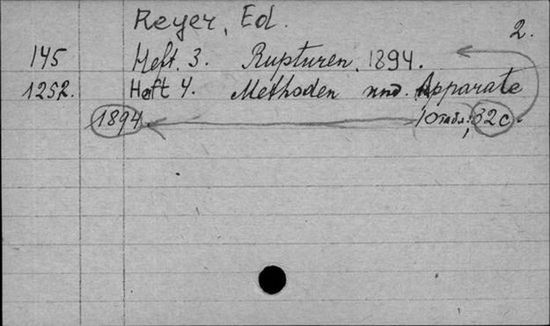 Reyer, Ed.
2.
145 Heft. 3. Rupturen. 1894.
1252. Heft 4. Methoden und. Apparate
1894. 10 табл.; 32 с.